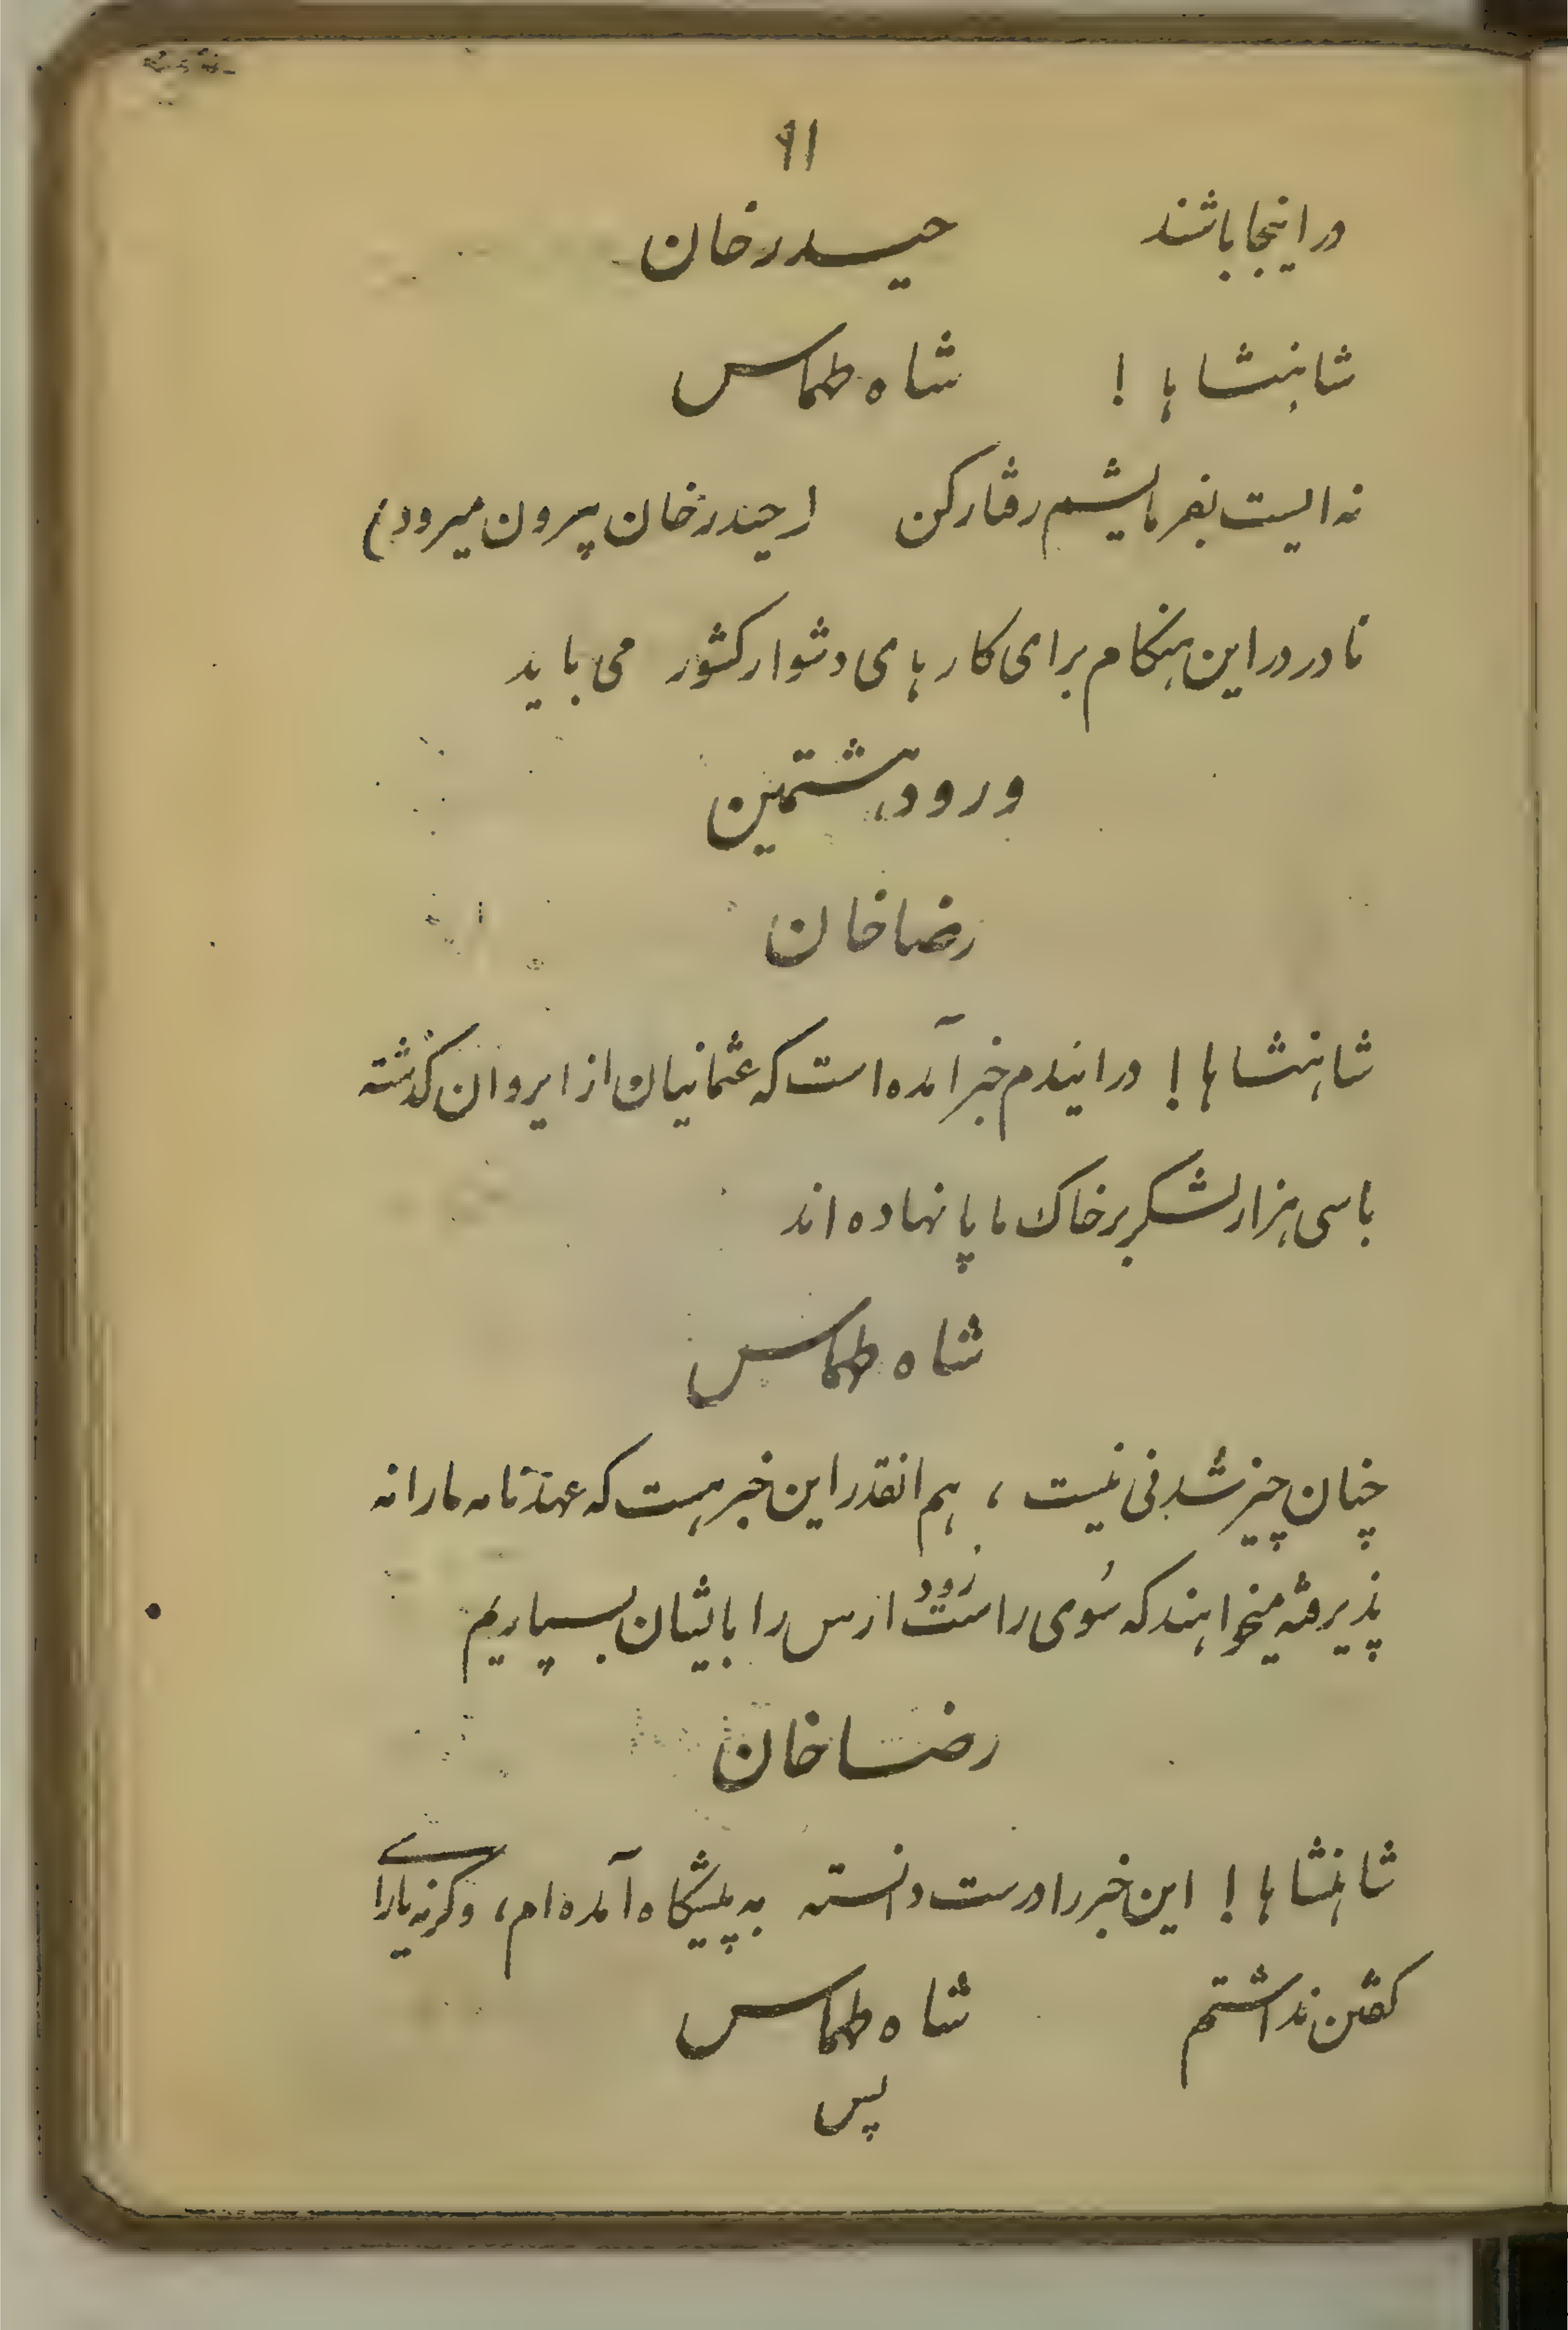 ۹۱
در اینجا باشند حیدرخان
شاهنشاها ! شاه طهماس
نه ایست بفرمایشم رفتار کن (حیدرخان بیرون میرود)
نادر در این هنکام برای کارهای دشوار کشور می باید
ورود هشتمین
رضاخان
شاهنشاها ! در ایندم خبر آمده است که عثمانیان از ایروان کذشته
با سی هزار لشکر بر خاک ما پا نهاده اند
شاه طهماس
چنان چیز شدنی نیست ، هم انقدر این خبر هست که عهدنامه ما را نه
پذیرفته میخواهند که سُوی راست رود ارس را بایشان بسپاریم
رضاخان
شاهنشاها ! این خبر را درست دانسته به پیشکاه آمده ام ، و کرنه یارای
کفتن نداشتم شاه طهماس
پس